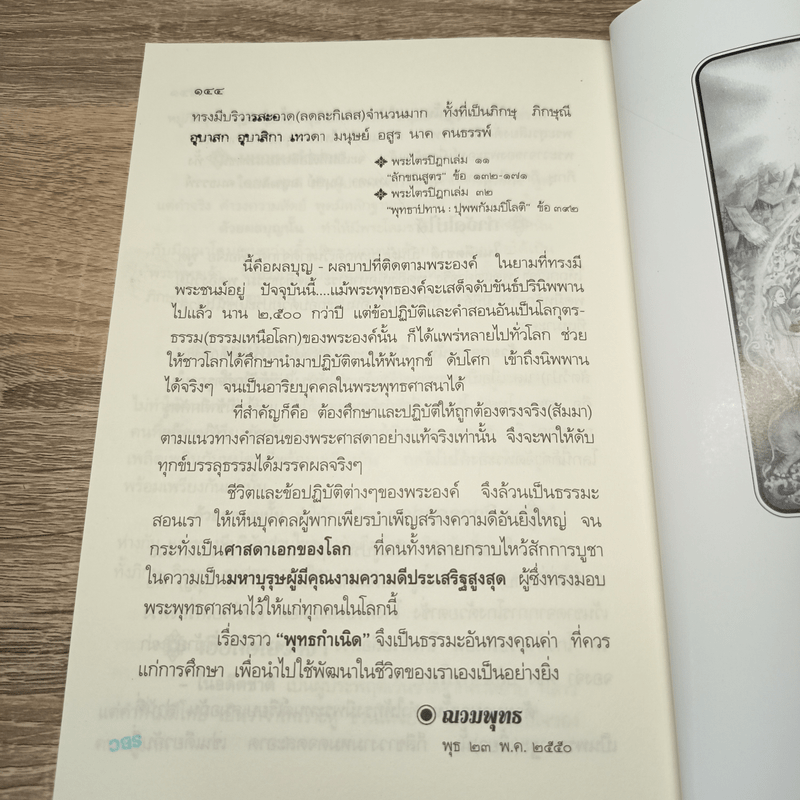 ๑๔๔
ทรงมีบริวารสะอาด(ลดละกิเลส)จำนวนมาก ทั้งที่เป็นภิกษุ ภิกษุณี
อุบาสก อุบาสิกา เทวดา มนุษย์ อสูร นาค คนธรรพ์
พระไตรปิฎกเล่ม ๑๑
"ลักขณสูตร" ข้อ ๑๓๒-๑๗๑
พระไตรปิฎกเล่ม ๓๒
"พุทธาปทาน : ปุพพกัมมปิโลติ" ข้อ ๓๙๒
นี้คือผลบุญ - ผลบาปที่ติดตามพระองค์ ในยามที่ทรงมี
พระชนม์อยู่ ปัจจุบันนี้....แม้พระพุทธองค์จะเสด็จดับขันธ์ปรินิพพาน
ไปแล้ว นาน ๒,๕๐๐ กว่าปี แต่ข้อปฏิบัติและคำสอนอันเป็นโลกุตร-
ธรรม(ธรรมเหนือโลก)ของพระองค์นั้น ก็ได้แพร่หลายไปทั่วโลก ช่วย
ให้ชาวโลกได้ศึกษานำมาปฏิบัติตนให้พ้นทุกข์ ดับโศก เข้าถึงนิพพาน
ได้จริงๆ จนเป็นอาริยบุคคลในพระพุทธศาสนาได้
ที่สำคัญก็คือ ต้องศึกษาและปฏิบัติให้ถูกต้องตรงจริง(สัมมา)
ตามแนวทางคำสอนของพระศาสดาอย่างแท้จริงเท่านั้น จึงจะพาให้ดับ
ทุกข์บรรลุธรรมได้มรรคผลจริงๆ
ชีวิตและข้อปฏิบัติต่างๆของพระองค์ จึงล้วนเป็นธรรมะ
สอนเรา ให้เห็นบุคคลผู้พากเพียรบำเพ็ญสร้างความดีอันยิ่งใหญ่ จน
กระทั่งเป็นศาสดาเอกของโลก ที่คนทั้งหลายกราบไหว้สักการบูชา
ในความเป็นมหาบุรุษผู้มีคุณงามความดีประเสริฐสูงสุด ผู้ซึ่งทรงมอบ
พระพุทธศาสนาไว้ให้แก่ทุกคนในโลกนี้
เรื่องราว "พุทธกำเนิด" จึงเป็นธรรมะอันทรงคุณค่า ที่ควร
แก่การศึกษา เพื่อนำไปใช้พัฒนาในชีวิตของเราเองเป็นอย่างยิ่ง
ณวมพุทธ
พุธ ๒๓ พ.ค. ๒๕๕๐